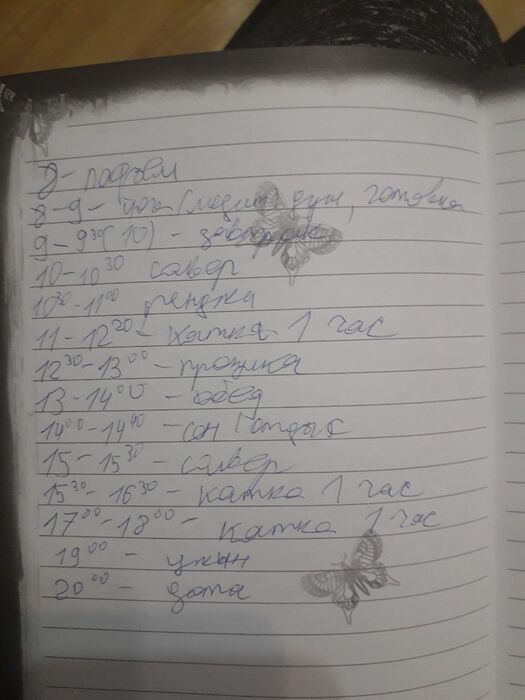 8 - подъем
8-9 - йога (медит) душ, готовка
9-9³⁰(10) - завтрак
10-10³⁰ солвер
10³⁰-11⁰⁰ ренджи
11-12²⁰ - катка 1 час
12³⁰-13⁰⁰ - прогулка
13-14⁰⁰ - обед
14⁰⁰-14⁴⁰ - сон/отдых
15-15³⁰ - солвер
15³⁰-16³⁰ - катка 1 час
17⁰⁰-18⁰⁰ - катка 1 час
19⁰⁰ - ужин
20⁰⁰ - дота